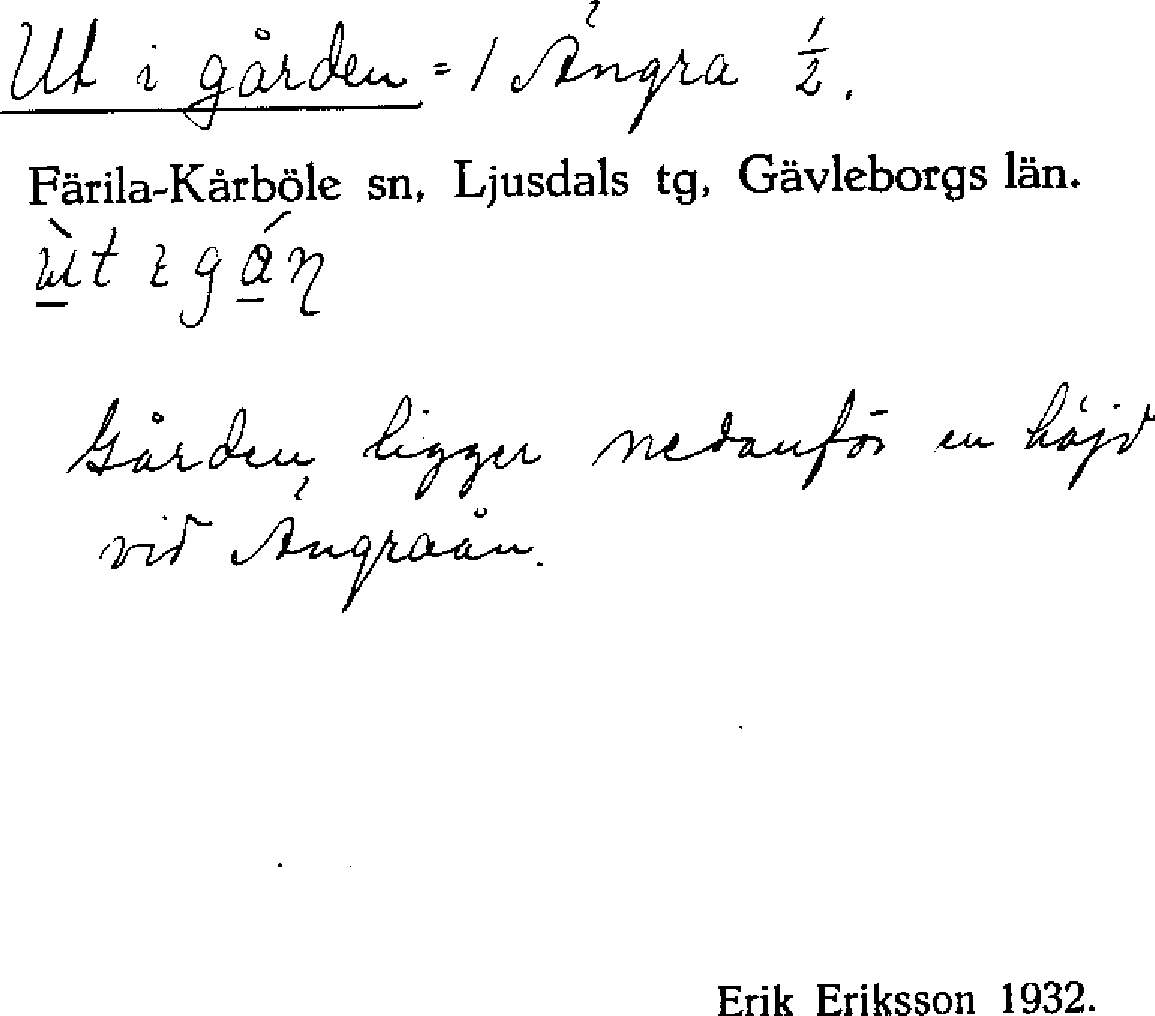 Ut i gården = 1 Ängra 1/2.
Färila-Kårböle sn, Ljusdals tg, Gävleborgs län.
Gården ligger nedanför en höjd
vid Ängraån.
Erik Eriksson 1932.